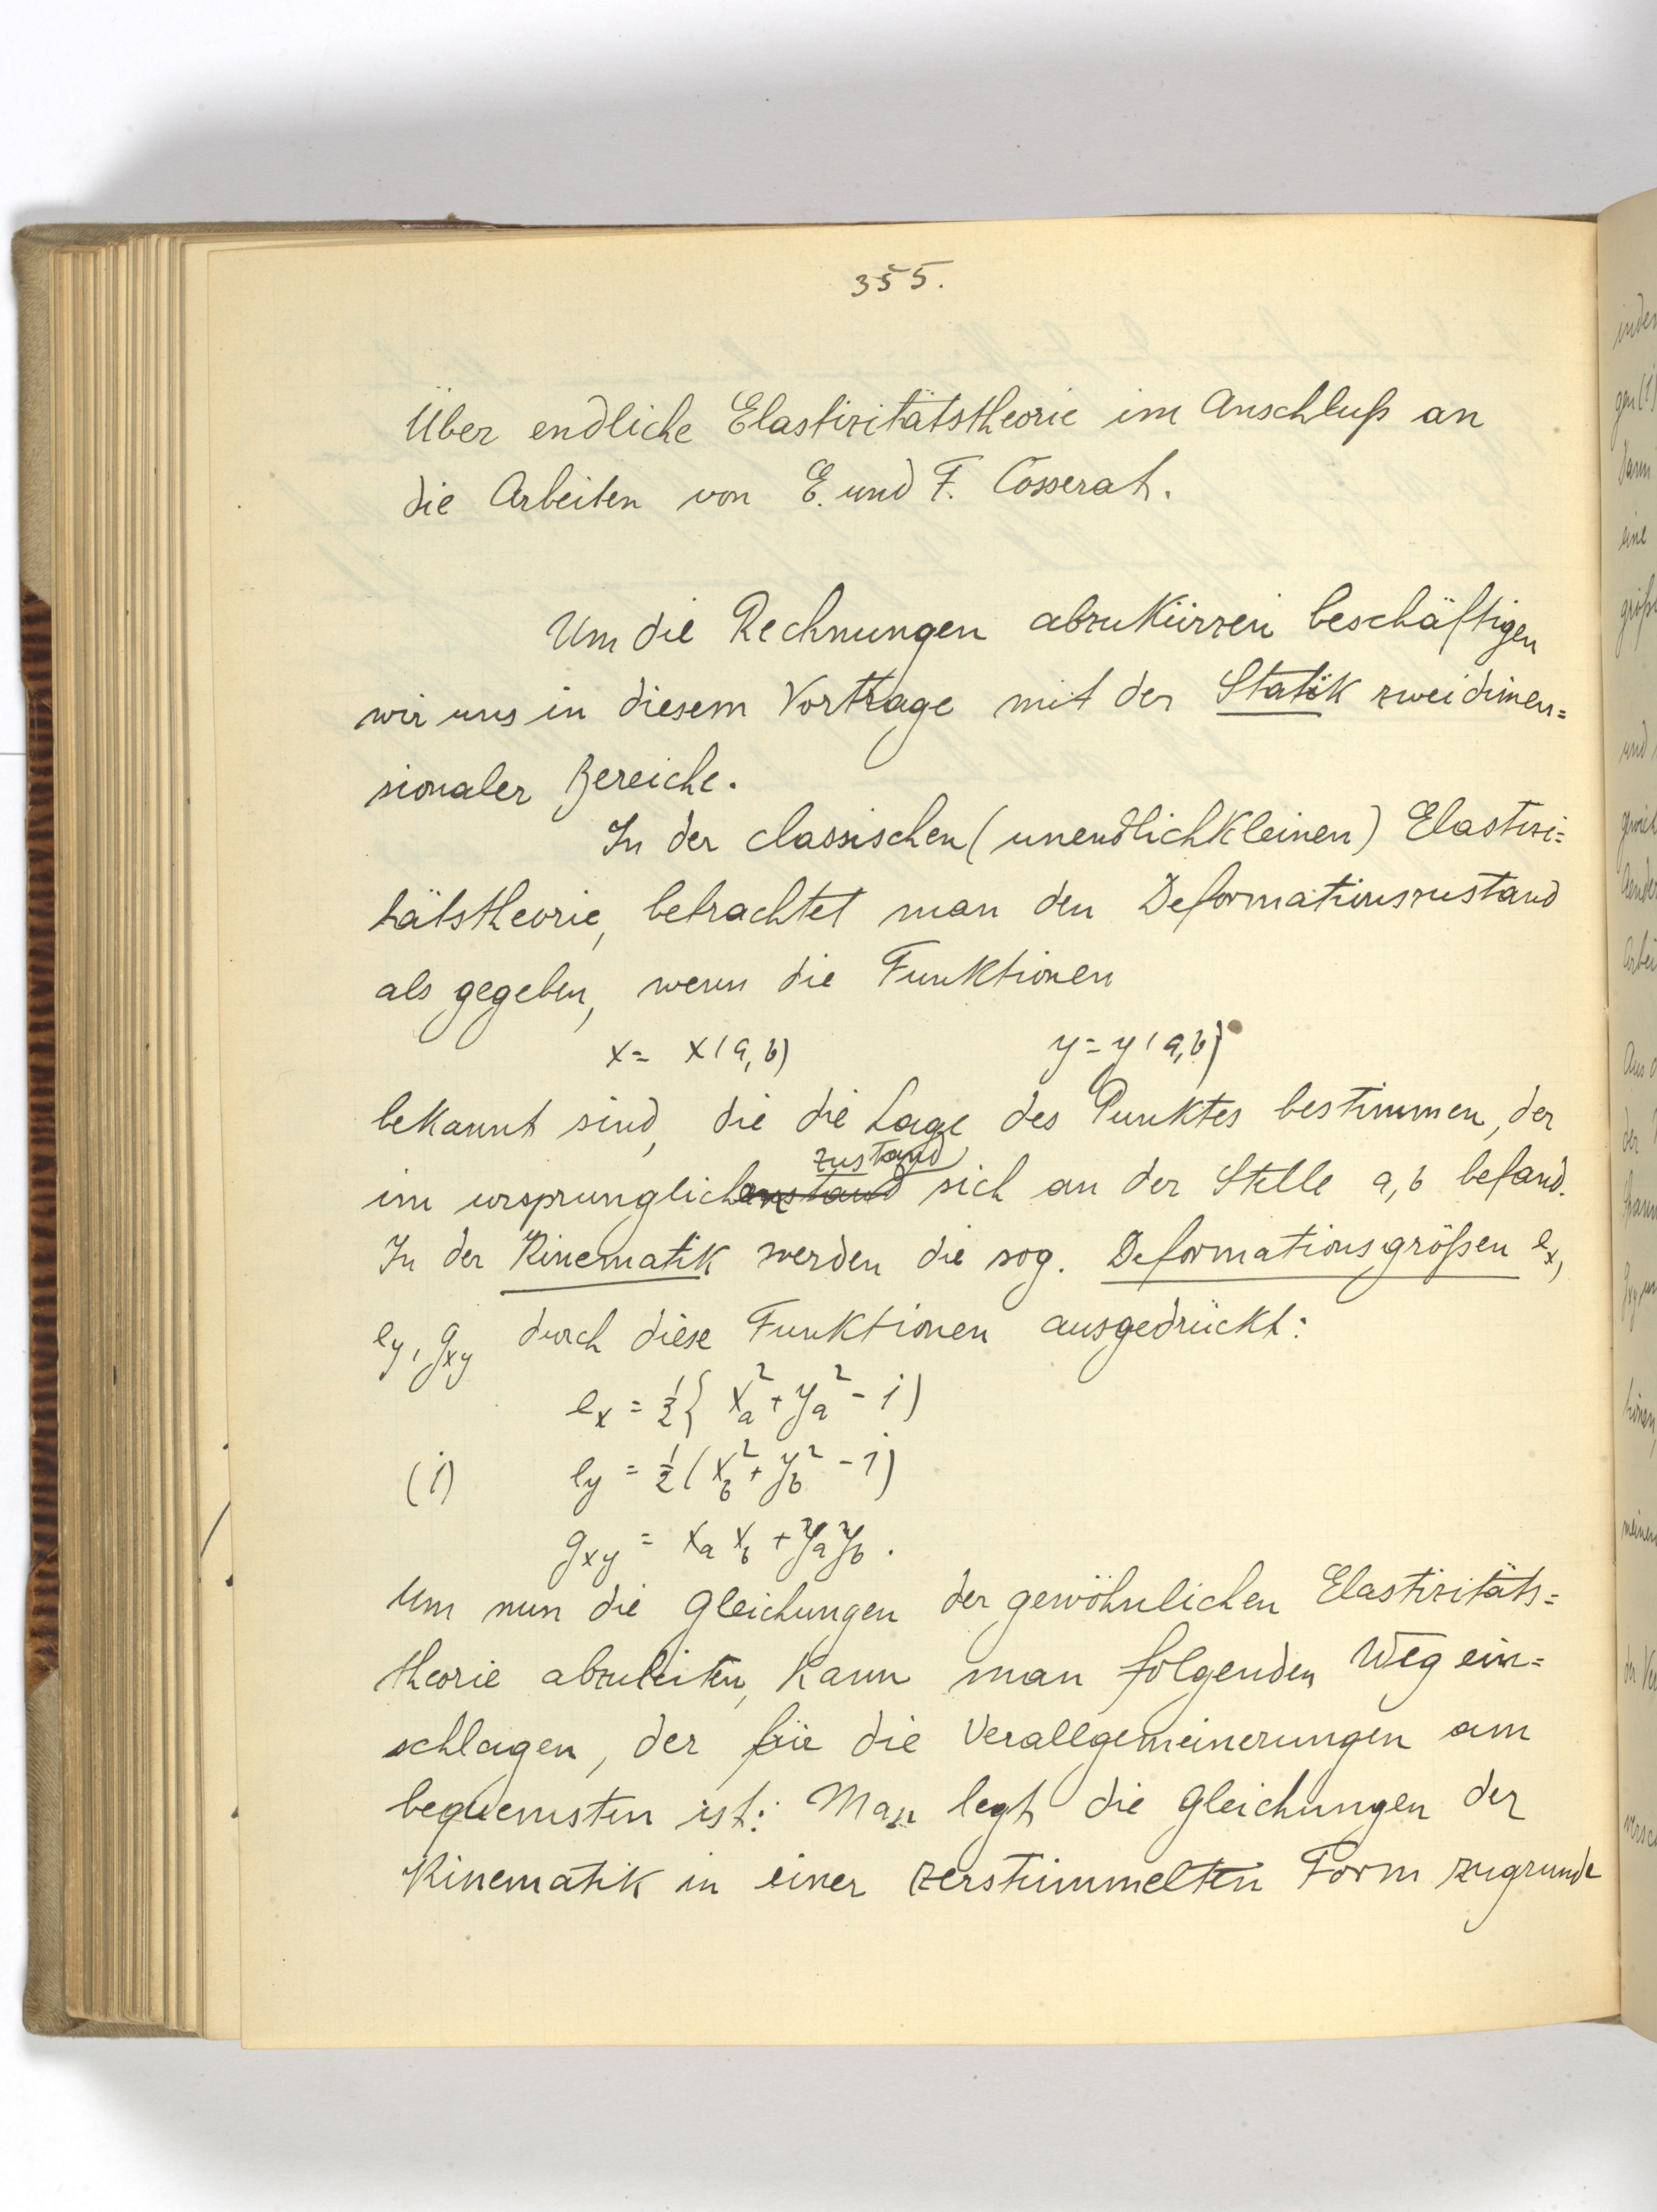 355.
Über endliche Elastizitätstheorie im Anschluß an
die Arbeiten von E. und F. Cosserat.
Um die Rechnungen abzukürzen beschäftigen
wir uns in diesem Vortrage mit der Statik zweidimen=
sionaler Bereiche.
In der classischen (unendlichkleinen) Elastizi=
tätstheorie, betrachtet man den Deformationszustand
als gegeben, wenn die Funktionen
x = x(a, b) y = y(a, b)
bekannt sind, die die Lage des Punktes bestimmen, der
zustand
im ursprunglich sich an der Stelle a, b befand.
In der Kinematik werden die sog. Deformationsgrößen eₓ,
e_y, g_xy durch diese Funktionen ausgedrückt:
e_x = ½{ x_a² + y_a² - 1)
(1) e_y = ½ ( x_b² + y_b² - 1)
g_xy = x_a x_b + y_a y_b.
Um nun die Gleichungen der gewöhnlichen Elastizitäts=
theorie abzuleiten, kann man folgenden Weg ein=
schlagen, der für die Verallgemeinerungen am
bequemsten ist: Man legt die Gleichungen der
Kinematik in einer verstümmelten Form zugrunde